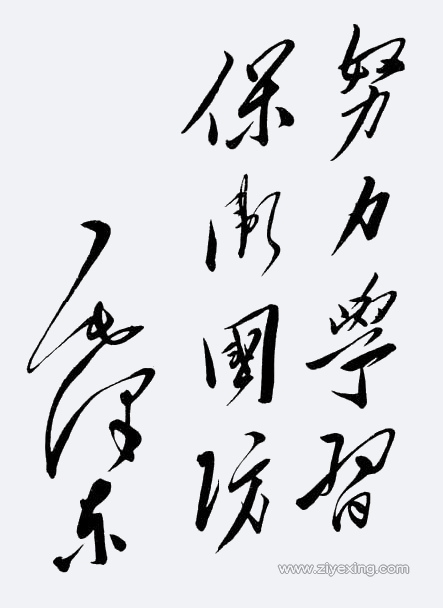 努力學習
保衛國防
毛澤东
www.ziyexing.com